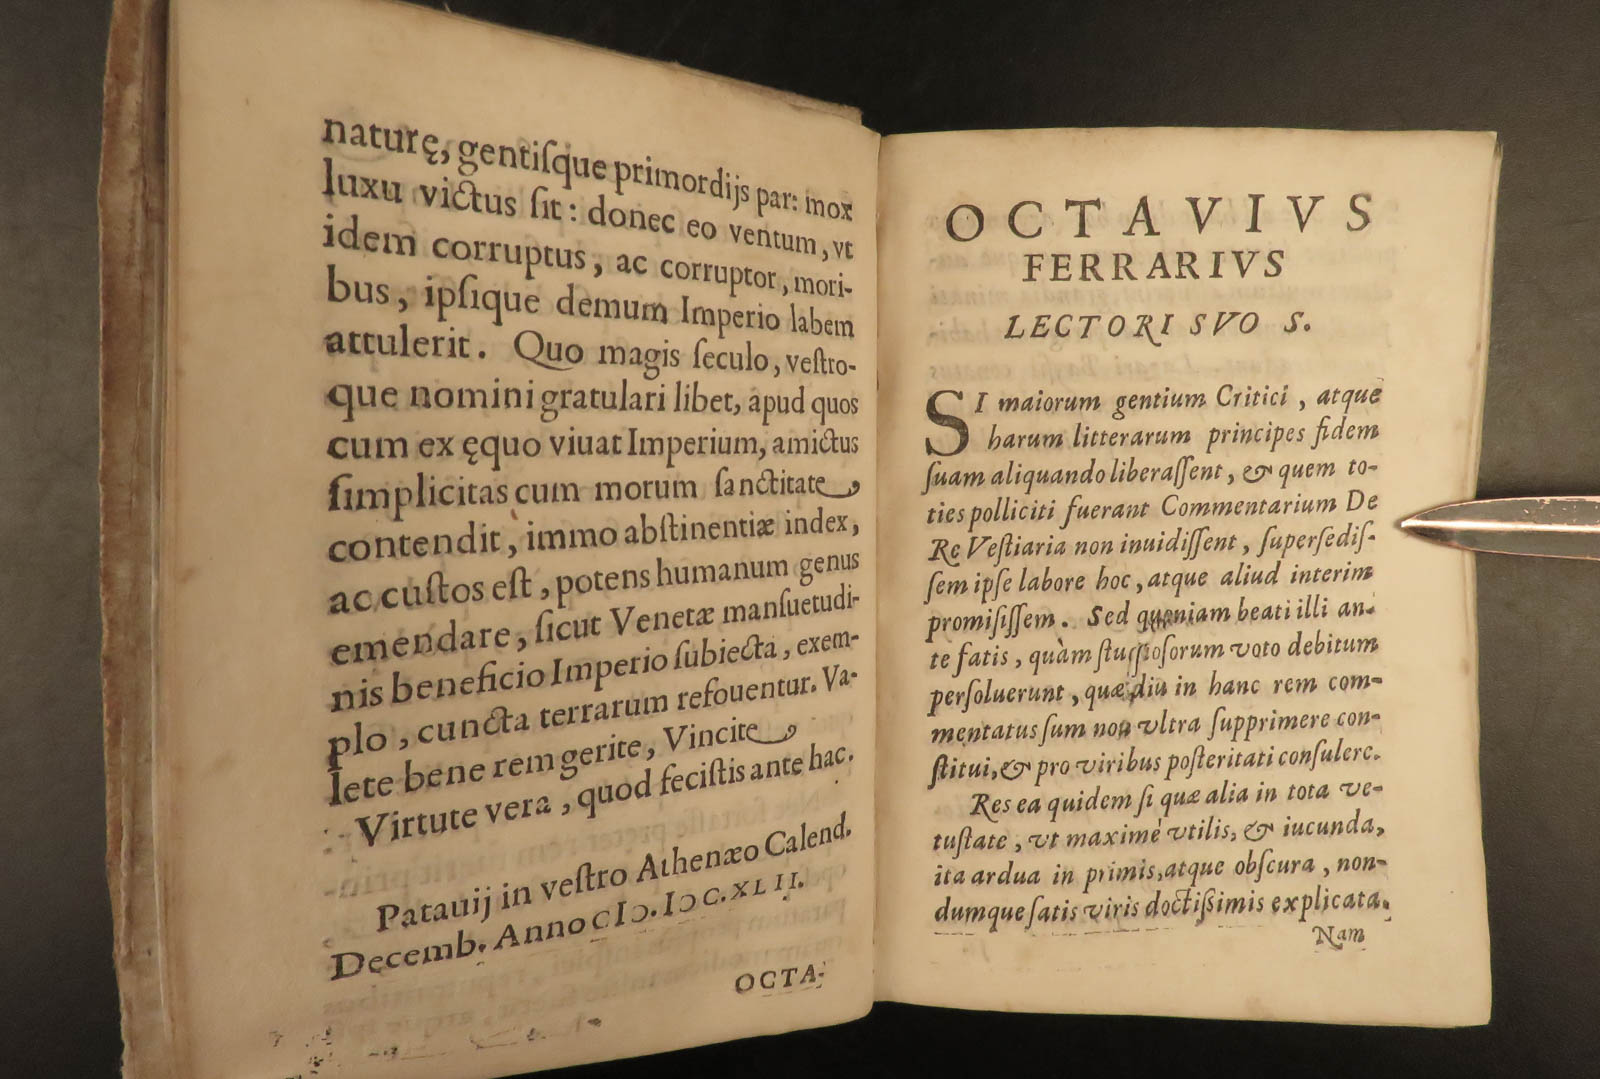 naturę, gentiſque primordijs par: mox
luxu victus ſit: donec eo ventum, vt
idem corruptus, ac corruptor, mori-
bus, ipſique demum Imperio labem
attulerit. Quo magis ſeculo, veſtro-
que nomini gratulari libet, apud quos
cum ex ęquo viuat Imperium, amictus
ſimplicitas cum morum ſanctitate
contendit, immo abſtinentiæ index,
ac cuſtos eſt, potens humanum genus
emendare, ſicut Venetæ manſuetudi-
nis beneficio Imperio ſubiecta, exem-
plo, cuncta terrarum refouentur. Va-
lete bene rem gerite, Vincite
Virtute vera, quod feciſtis ante hac.
Patauij in veſtro Athenæo Calend.
Decemb. Anno cIↃ. IↃc. XLII.
OCTA-
OCTAVIVS
FERRARIVS
LECTORI SVO S.
SI maiorum gentium Critici, atque
harum litterarum principes fidem
ſuam aliquando liberaſſent, & quem to-
ties polliciti fuerant Commentarium De
Re Veſtiaria non inuidiſſent, ſuperſediſ-
ſem ipſe labore hoc, atque aliud interim
promiſiſſem. Sed quoniam beati illi an-
te fatis, quàm ſtudioſorum voto debitum
perſoluerunt, quæ diu in hanc rem com-
mentatus ſum non vltra ſupprimere con-
ſtitui, & pro viribus poſteritati conſulere.
Res ea quidem ſi quæ alia in tota ve-
tuſtate, vt maximè vtilis, & iucunda,
ita ardua in primis, atque obſcura, non-
dumque ſatis viris doctiſsimis explicata.
Nam